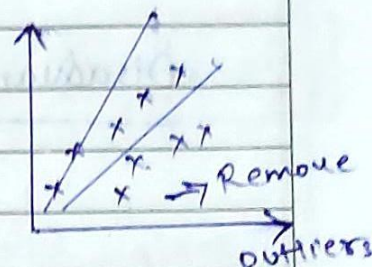 → Remove
outliers